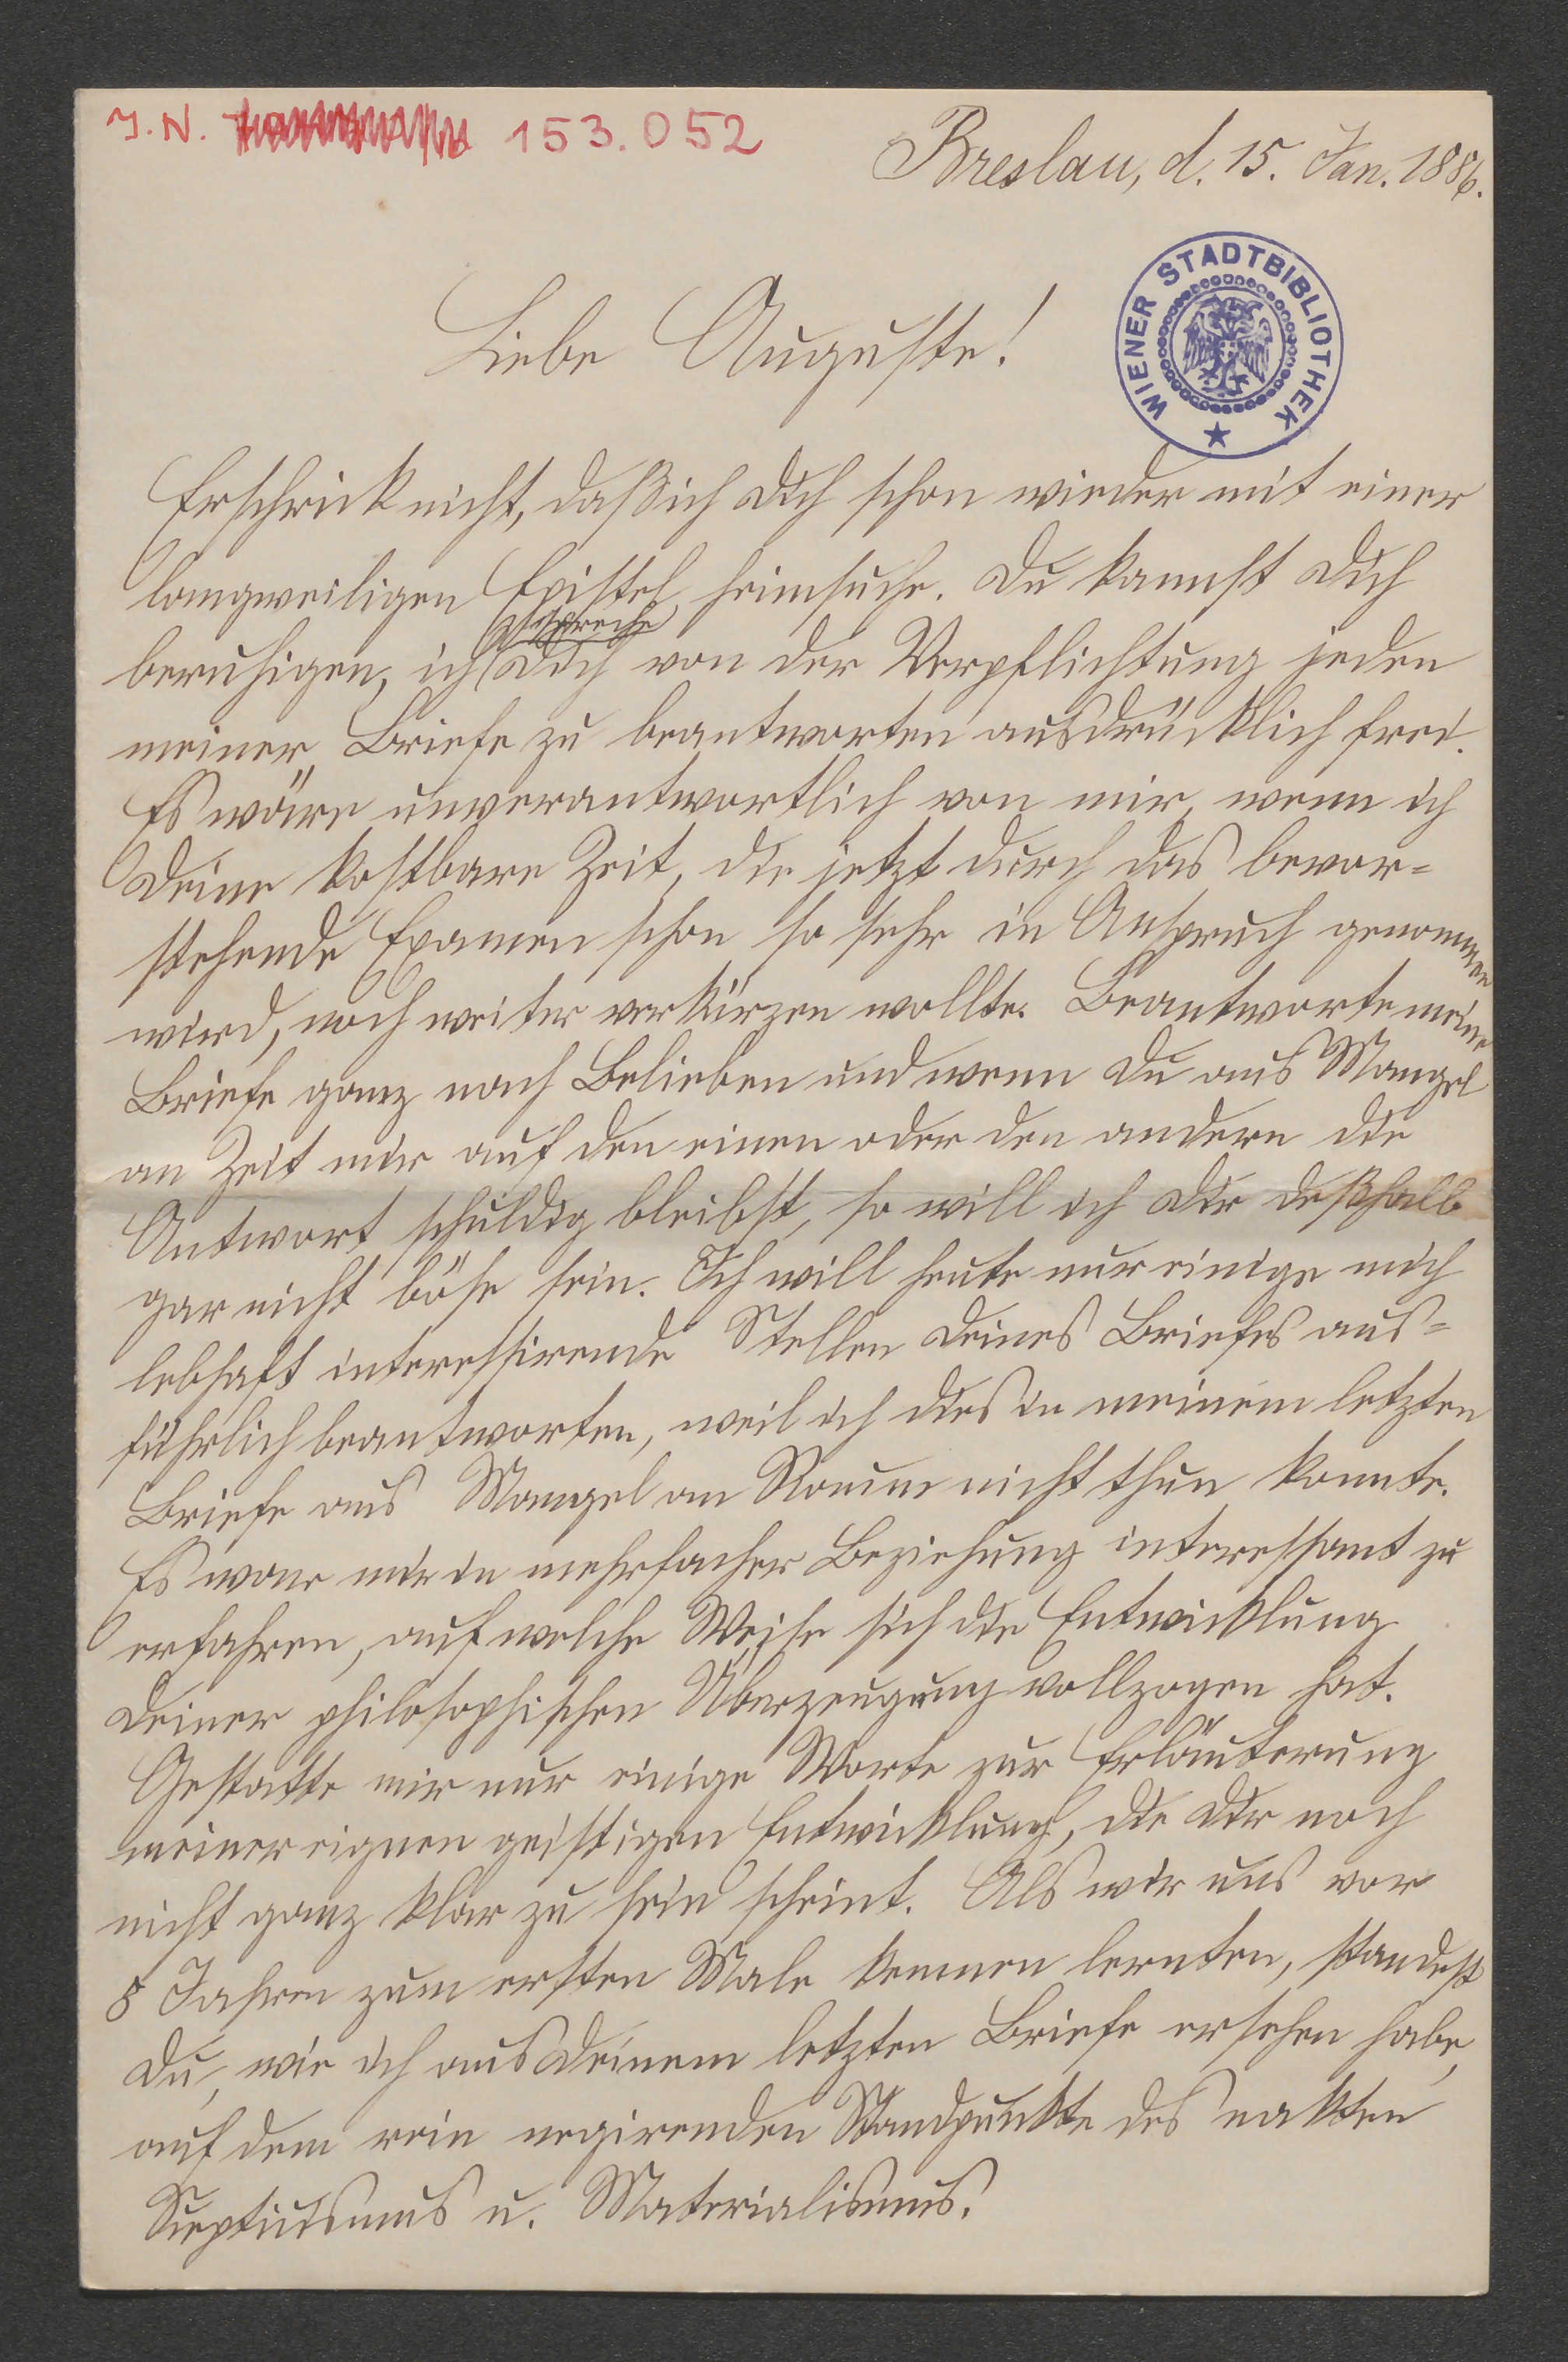 J. N. 153.052
Breslau, d. 15. Jan. 1886.
WIENER STADTBIBLIOTHEK
Liebe Auguste!
Erschrick nicht, daß ich Dich schon wieder mit einer
langweiligen Epistel heimsuche. Du kannst Dich
spreche
beruhigen, ich Dich von der Verpflichtung jeden
meiner Briefe zu beantworten ausdrücklich frei.
Es wäre unverantwortlich von mir, wenn ich
Deine kostbare Zeit, die jetzt durch das bevor=
stehende Examen schon so sehr in Anspruch genommen
wird, noch weiter verkürzen wollte. Beantworte meine
Briefe ganz nach Belieben und wenn Du aus Mangel
an Zeit mir auf den einen oder den andern die
Antwort schuldig bleibst, so will ich Dir deßhalb
gar nicht böse sein. Ich will heute nur einige mich
lebhaft interessirende Stellen Deines Briefes aus=
führlich beantworten, weil ich dies in meinem letzten
Briefe aus Mangel an Raum nicht thun konnte.
Es war mir in mehrfacher Beziehung interessant zu
erfahren, auf welche Weise sich die Entwicklung
Deiner philosophischen Überzeugung vollzogen hat.
Gestatte mir nur einige Worte zur Erläuterung
meiner eignen geistigen Entwicklung, die Dir noch
nicht ganz klar zu sein scheint. Als wir uns vor
8 Jahren zum ersten Male kennen lernten, standest
Du, wie ich aus Deinem letzten Briefe ersehen habe,
auf dem rein negirenden Standpunkte des nakten
Skeptizismus u. Materialismus.